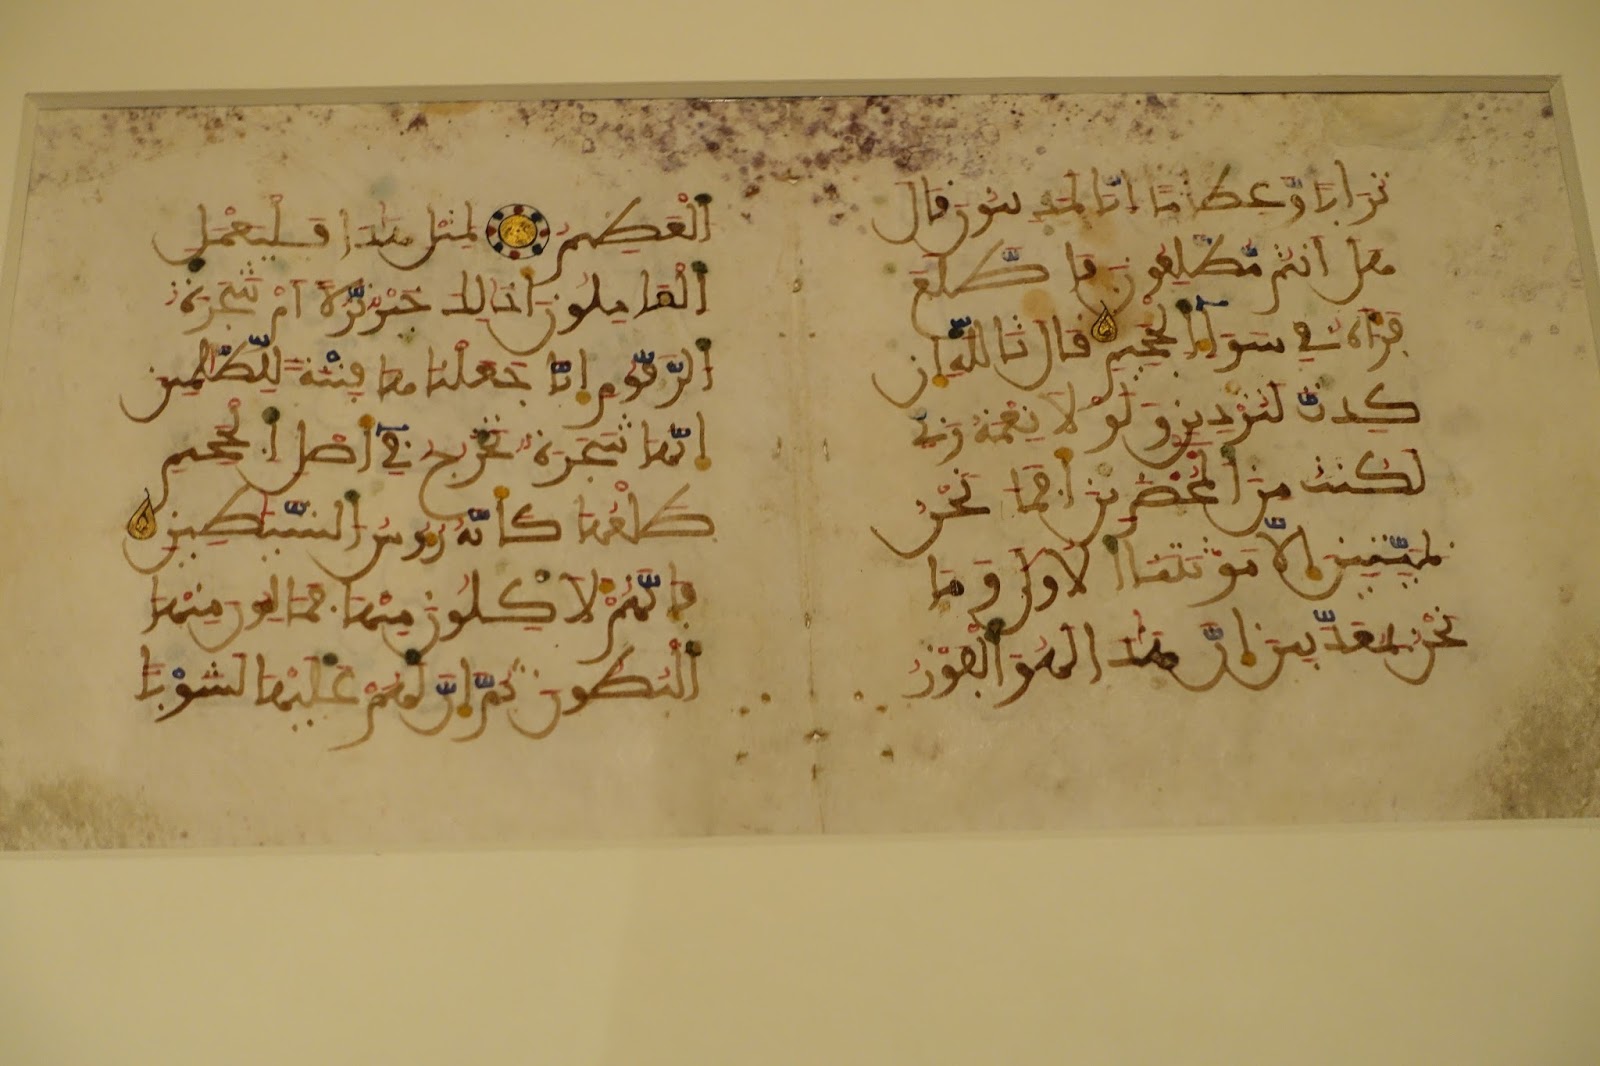 تُرَابًا وَعِظَامًا إِنَّا لَمَدِينُونَ قَالَ
هَلْ أَنتُم مُّطَّلِعُونَ فَاطَّلَعَ
فَرَءَاهُ فِي سَوَآءِ الْجَحِيمِ قَالَ تَاللَّهِ إِن
كِدتَّ لَتُرْدِينِ وَلَوْلَا نِعْمَةُ رَبِّي
لَكُنتُ مِنَ الْمُحْضَرِينَ أَفَمَا نَحْنُ
بِمَيِّتِينَ إِلَّا مَوْتَتَنَا الْأُولَىٰ وَمَا
نَحْنُ بِمُعَذَّبِينَ إِنَّ هَٰذَا لَهُوَ الْفَوْزُ
الْعَظِيمُ لِمِثْلِ هَٰذَا فَلْيَعْمَلِ
الْعَامِلُونَ أَذَٰلِكَ خَيْرٌ نُّزُلًا أَمْ شَجَرَةُ
الزَّقُّومِ إِنَّا جَعَلْنَاهَا فِتْنَةً لِّلظَّالِمِينَ
إِنَّهَا شَجَرَةٌ تَخْرُجُ فِي أَصْلِ الْجَحِيمِ
طَلْعُهَا كَأَنَّهُ رُءُوسُ الشَّيَاطِينِ
فَإِنَّهُمْ لَآكِلُونَ مِنْهَا فَمَالِئُونَ مِنْهَا
الْبُطُونَ ثُمَّ إِنَّ لَهُمْ عَلَيْهَا لَشَوْبًا